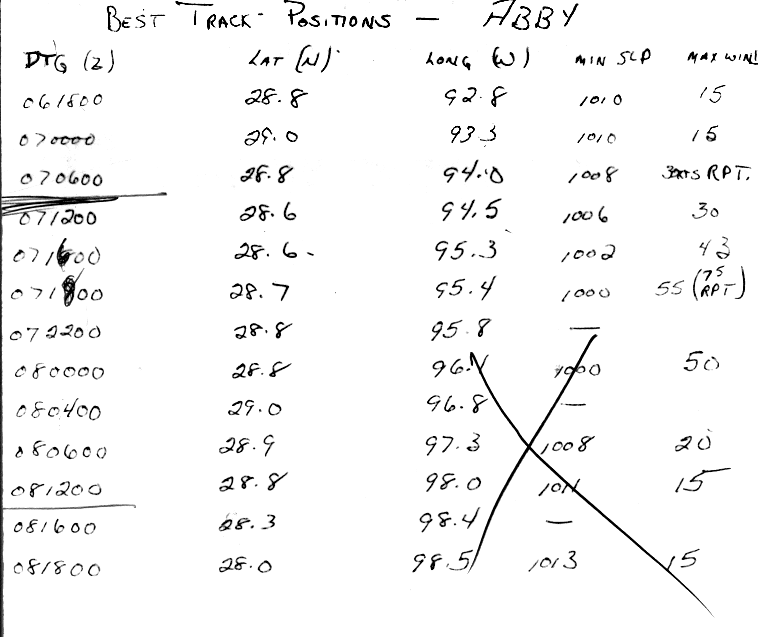 BEST TRACK POSITIONS — ABBY
DTG (Z) LAT (N) LONG (W) MIN SLP MAX WIND
061800 28.8 92.8 1010 15
070000 29.0 93.3 1010 15
070600 28.8 94.0 1008 30KTS RPT.
071200 28.6 94.5 1006 30
071600 28.6 95.3 1002 43
071800 28.7 95.4 1000 55 (75 RPT)
072200 28.8 95.8 —
080000 28.8 96.1 1000 50
080400 29.0 96.8 —
080600 28.9 97.3 1008 20
081200 28.8 98.0 1011 15
081600 28.3 98.4 —
081800 28.0 98.5 1013 15